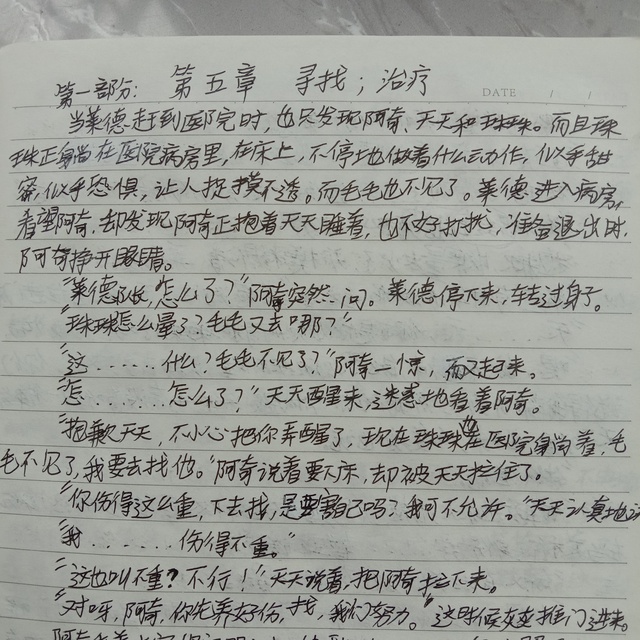 第一部分: 第五章 寻找；治疗
DATE / /
当莱德赶到医院时,也只发现阿奇、天天和珠珠。而且珠
珠正躺在医院病房里,在床上,不停地做着什么动作,似乎甜
蜜,似乎恐惧,让人捉摸不透。而毛毛也不见了。莱德进入病房,
看望阿奇,却发现阿奇正抱着天天睡着,也不好打扰,准备退出时,
阿奇挣开眼睛。
“莱德队长,怎么了?”阿奇突然问。莱德停下来,转过身子。
“珠珠怎么晕了?毛毛又去哪?”
“这……什么?毛毛不见了?”阿奇一惊,而又起来。
“怎……怎么了?”天天醒来,迷惑地看着阿奇。
“抱歉天天,不小心把你弄醒了,现在珠珠也在医院躺着,毛
毛不见了,我要去找他。”阿奇说着要下床,却被天天拉住了。
“你伤得这么重,下去找,是要害自己吗?我可不允许。”天天认真地
“我……伤得不重。”
“这也叫不重?不行!”天天说着,把阿奇拉下来。
“对呀,阿奇,你先养好伤,找,我们努力。”这时候灰灰推门进来。